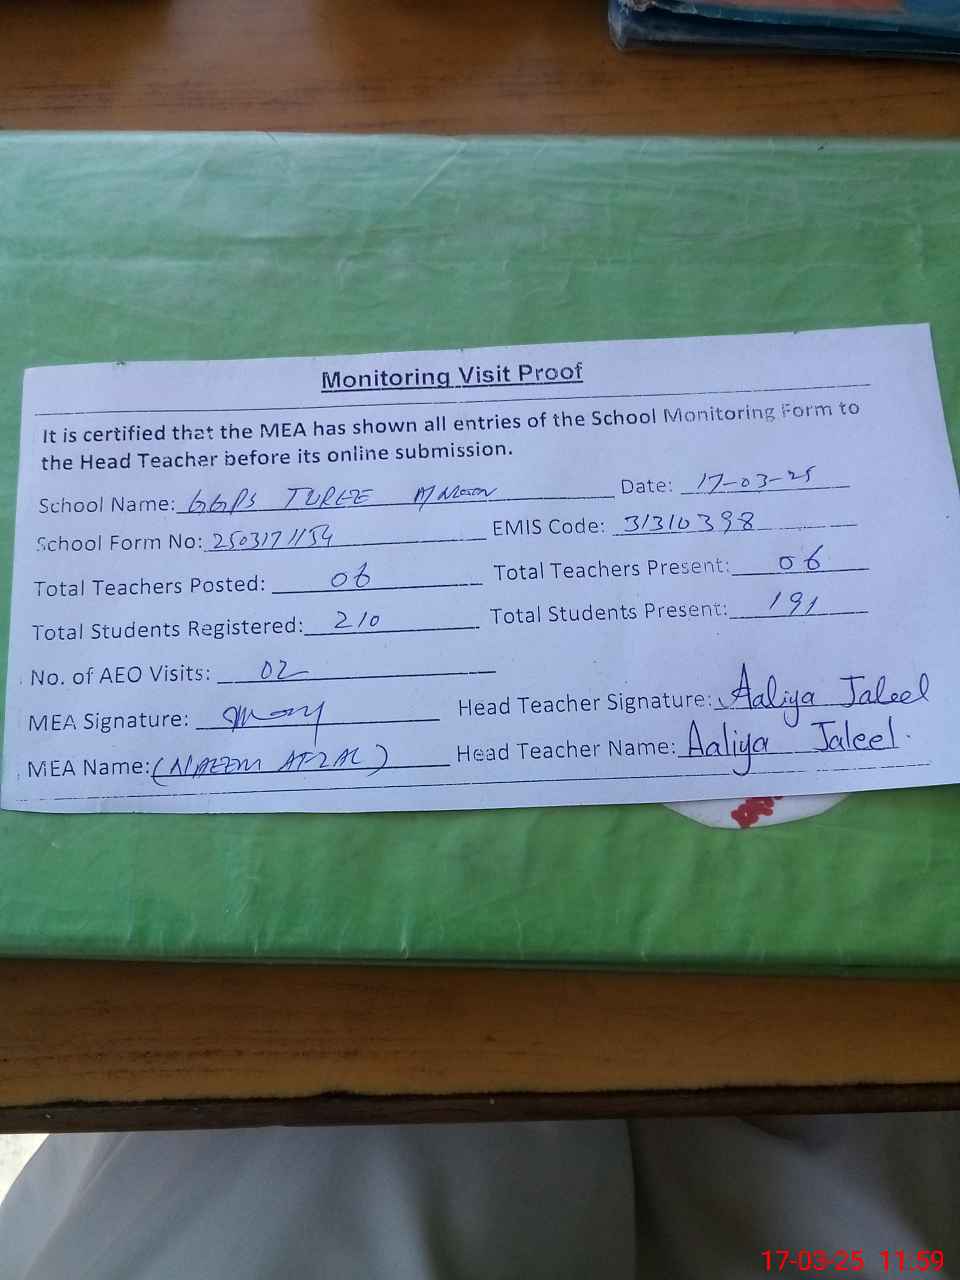 Monitoring Visit Proof
It is certified that the MEA has shown all entries of the School Monitoring Form to
the Head Teacher before its online submission.
School Name: GGPS Date: 17-03-25
School Form No: 250317 1154 EMIS Code: 31310398
Total Teachers Posted: 06 Total Teachers Present: 06
Total Students Registered: 210 Total Students Present: 191
No. of AEO Visits: 02
MEA Signature: Head Teacher Signature: Aaliya Jaleel
MEA Name: (NAEEM AFZAL) Head Teacher Name: Aaliya Jaleel.
17-03-25 11:59